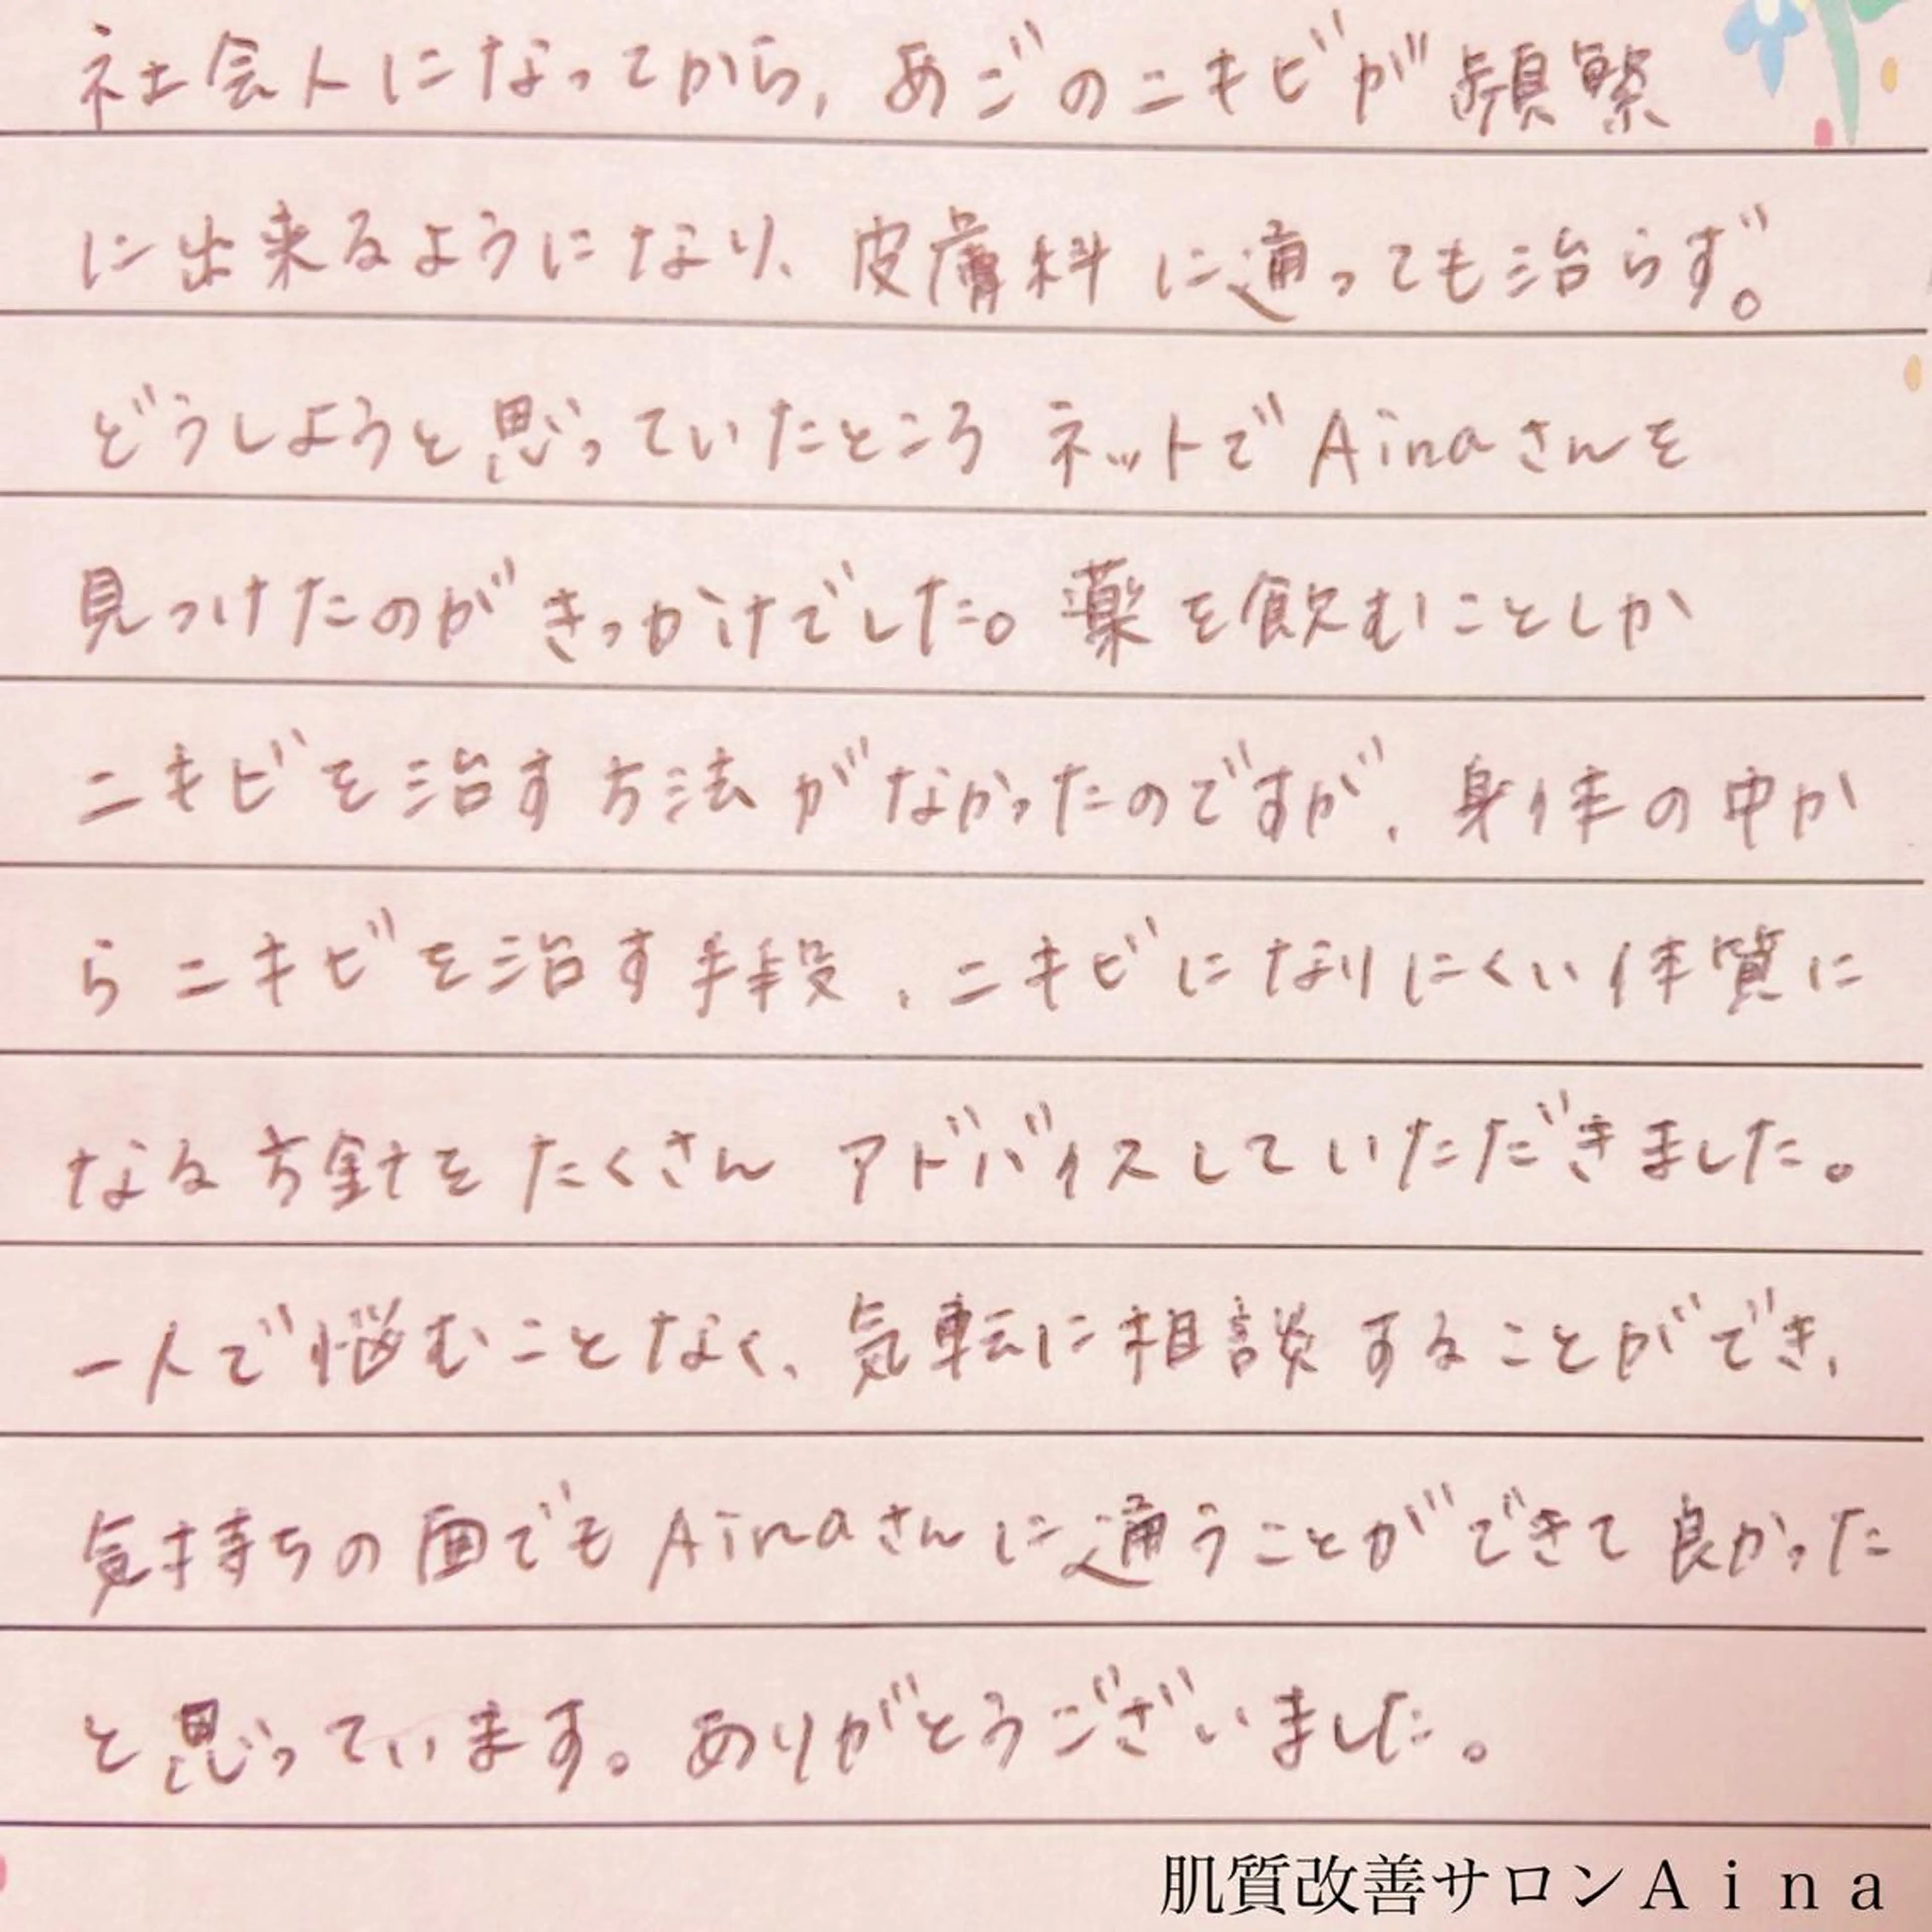 社会人になってから、あごのニキビが頻繁
に出来るようになり、皮膚科に通っても治らず。
どうしようと思っていたところ ネットでAinaさんを
見つけたのがきっかけでした。薬を飲むことしか
ニキビを治す方法がなかったのですが、身体の中か
らニキビを治す手段、ニキビになりにくい体質に
なる方針をたくさん アドバイスしていただきました。
一人で悩むことなく、気転に相談することができ、
気持ちの面でもAinaさんに通うことができて良かった
と思っています。ありがとうございました。
肌質改善サロンAina